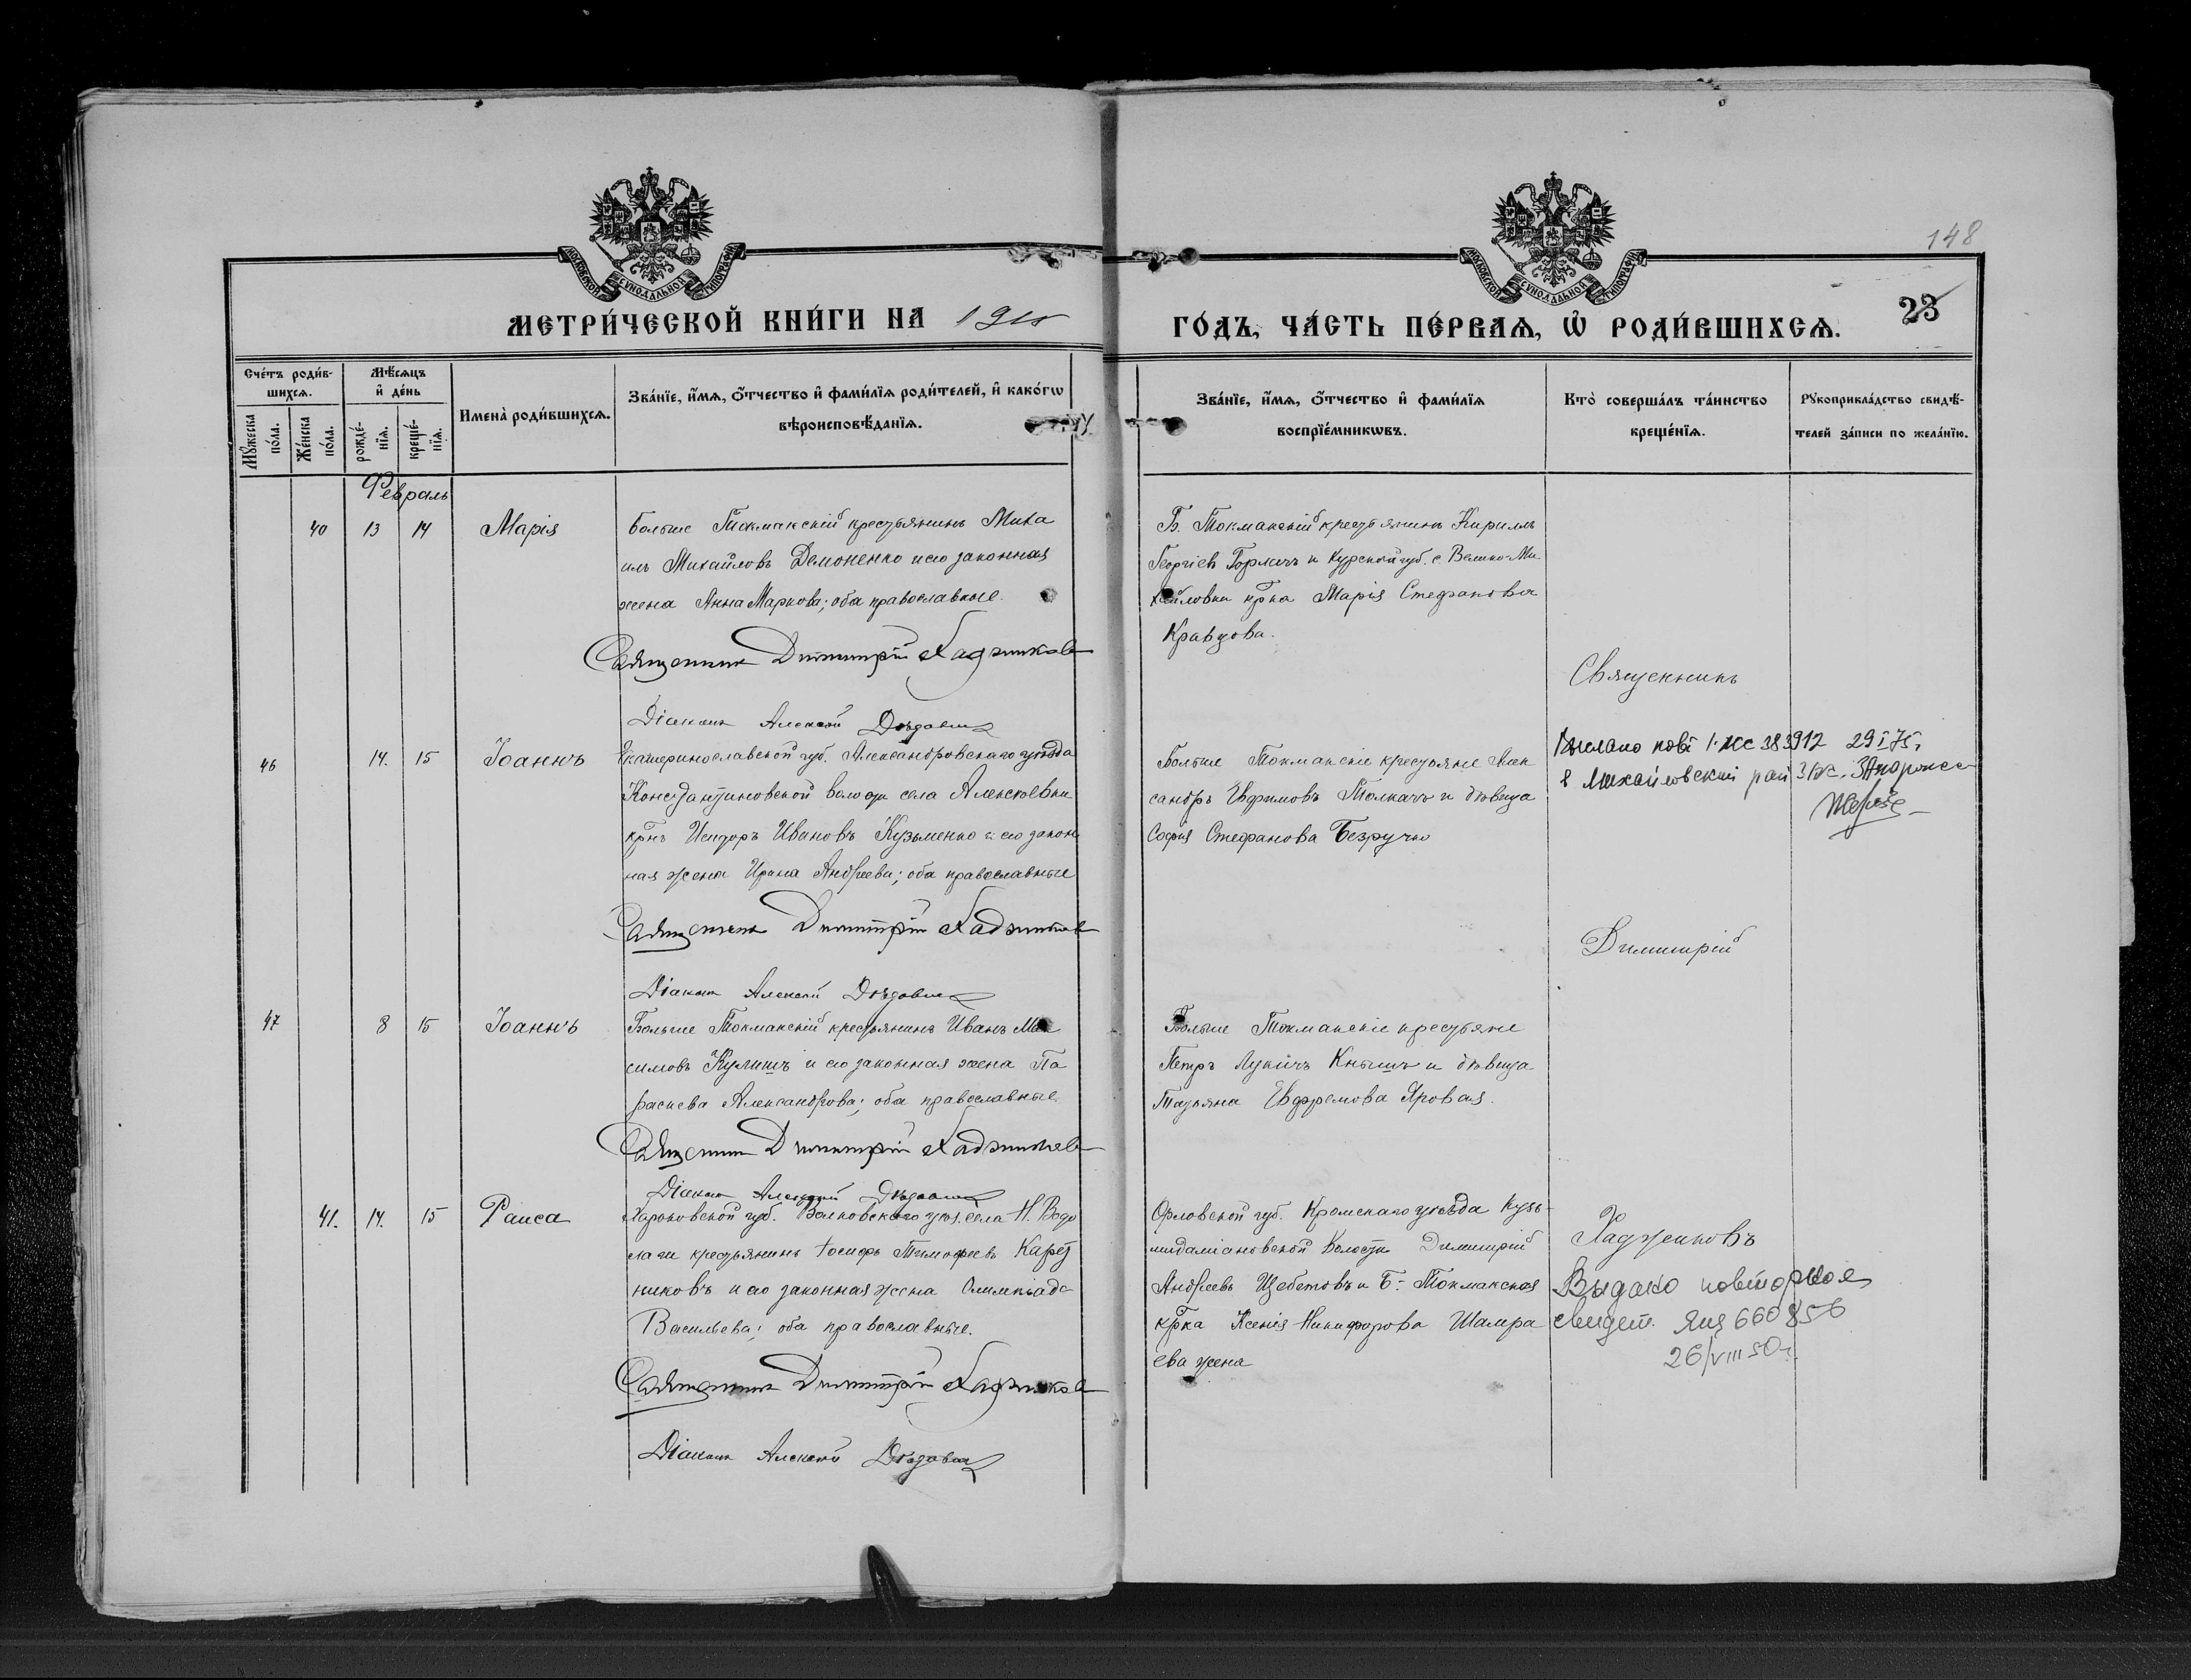 148
23
МОСКОВСКОЙ СѴНОДАЛЬНОЙ ТИПОГРАФІИ
МОСКОВСКОЙ СѴНОДАЛЬНОЙ ТИПОГРАФІИ
МЕТРИ́ЧЕСКОЙ КНИ́ГИ НА
ГО́ДЪ, ЧА́СТЬ ПЕ́РВАѦ, Ѿ РОДИ́ВШИХСѦ.
Сче́тъ роди́в-
шихсѧ.
Мꙋ́жеска по́ла.
Же́нска по́ла.
Мѣ́сѧцъ
и҆ де́нь
рожде́-
нїѧ.
креще́-
нїѧ.
Имена̀ роди́вшихсѧ.
Зва́нїе, и҆́мѧ, ѻ҆́тчество и҆ фами́лїѧ роди́телей, и҆ како́гѡ
вѣроисповѣ́данїѧ.
Зва́нїе, и҆́мѧ, ѻ҆́тчество и҆ фами́лїѧ
воспрїе́мникѡвъ.
Кто̀ соверша́лъ та́инство
креще́нїѧ.
Рꙋкоприкла́дство свидѣ́-
телей за́писи по жела́нїю.
Февраль
40 13 14 Марія
Больше Токмакскій крестьянинъ Миха
илъ Михайловъ Демоненко и его законная
жена Анна Маркова; оба православные.
Священникъ Димитрій Хаджиновъ
Діаконъ Алексей
Б. Токмакскій крестьянинъ Кириллъ
Георгіев и Курской губ. с. Велико-Ми-
хайловки кр-ка Марія Стефанова
Кравцова.
Священникъ
46 14. 15 Іоаннъ
Екатеринославской губ. Александровскаго уѣзда
Константиновской волости села Алексѣевки
кр-нъ Исидоръ Ивановъ Кузьменко и его закон
ная жена Ирина Андреева; оба православные
Священникъ Димитрій Хаджиновъ
Діаконъ Алексей
Больше Токмакскіе крестьяне Алек
сандръ Евфимовъ Толкачъ и дѣвица
Софія Стефанова Безручко
Выслано повт 383912 29 I 75 г
в Михайловский рай Запорож
Димитрій
47 8 15 Іоаннъ
Больше Токмакскій крестьянинъ Иванъ Мак
симовъ Кулишъ и его законная жена Па
раскева Александрова; оба православные.
Священникъ Димитрій Хаджиновъ
Діаконъ Алексей
Больше Токмакскіе крестьяне
Петръ Лукичъ Кнышъ и дѣвица
Татьяна Евфремова Яровая.
41. 14. 15 Раиса
Харьковской губ. Валковскаго уѣз. села Н. Водо
лаги крестьянинъ Іосифъ Тимофеевъ Карет
никовъ и его законная жена Олимпіада
Васильева; оба православные.
Священникъ Димитрій Хаджиновъ
Діаконъ Алексей
Орловской губ. Кромскаго уѣзда Кузь-
мидаміановской Волости Димитрій
Андреевъ Щебетовъ и Б.- Токмакская
кр-ка Ксенія Никифорова Шамра
ева жена
Хаджиновъ
Выдано повторное
свидет. 660856
26/VIII 50 г.